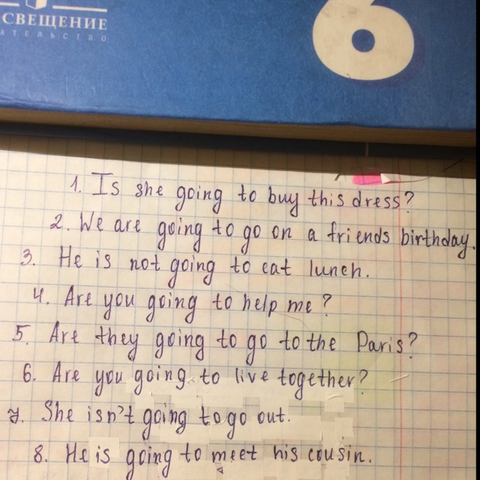 СВЕЩЕНИЕ
АТЕЛЬСТВО
6
1. Is she going to buy this dress?
2. We are going to go on a friends birthday.
3. He is not going to eat lunch.
4. Are you going to help me?
5. Are they going to go to the Paris?
6. Are you going to live together?
7. She isn't going to go out.
8. He is going to meet his cousin.